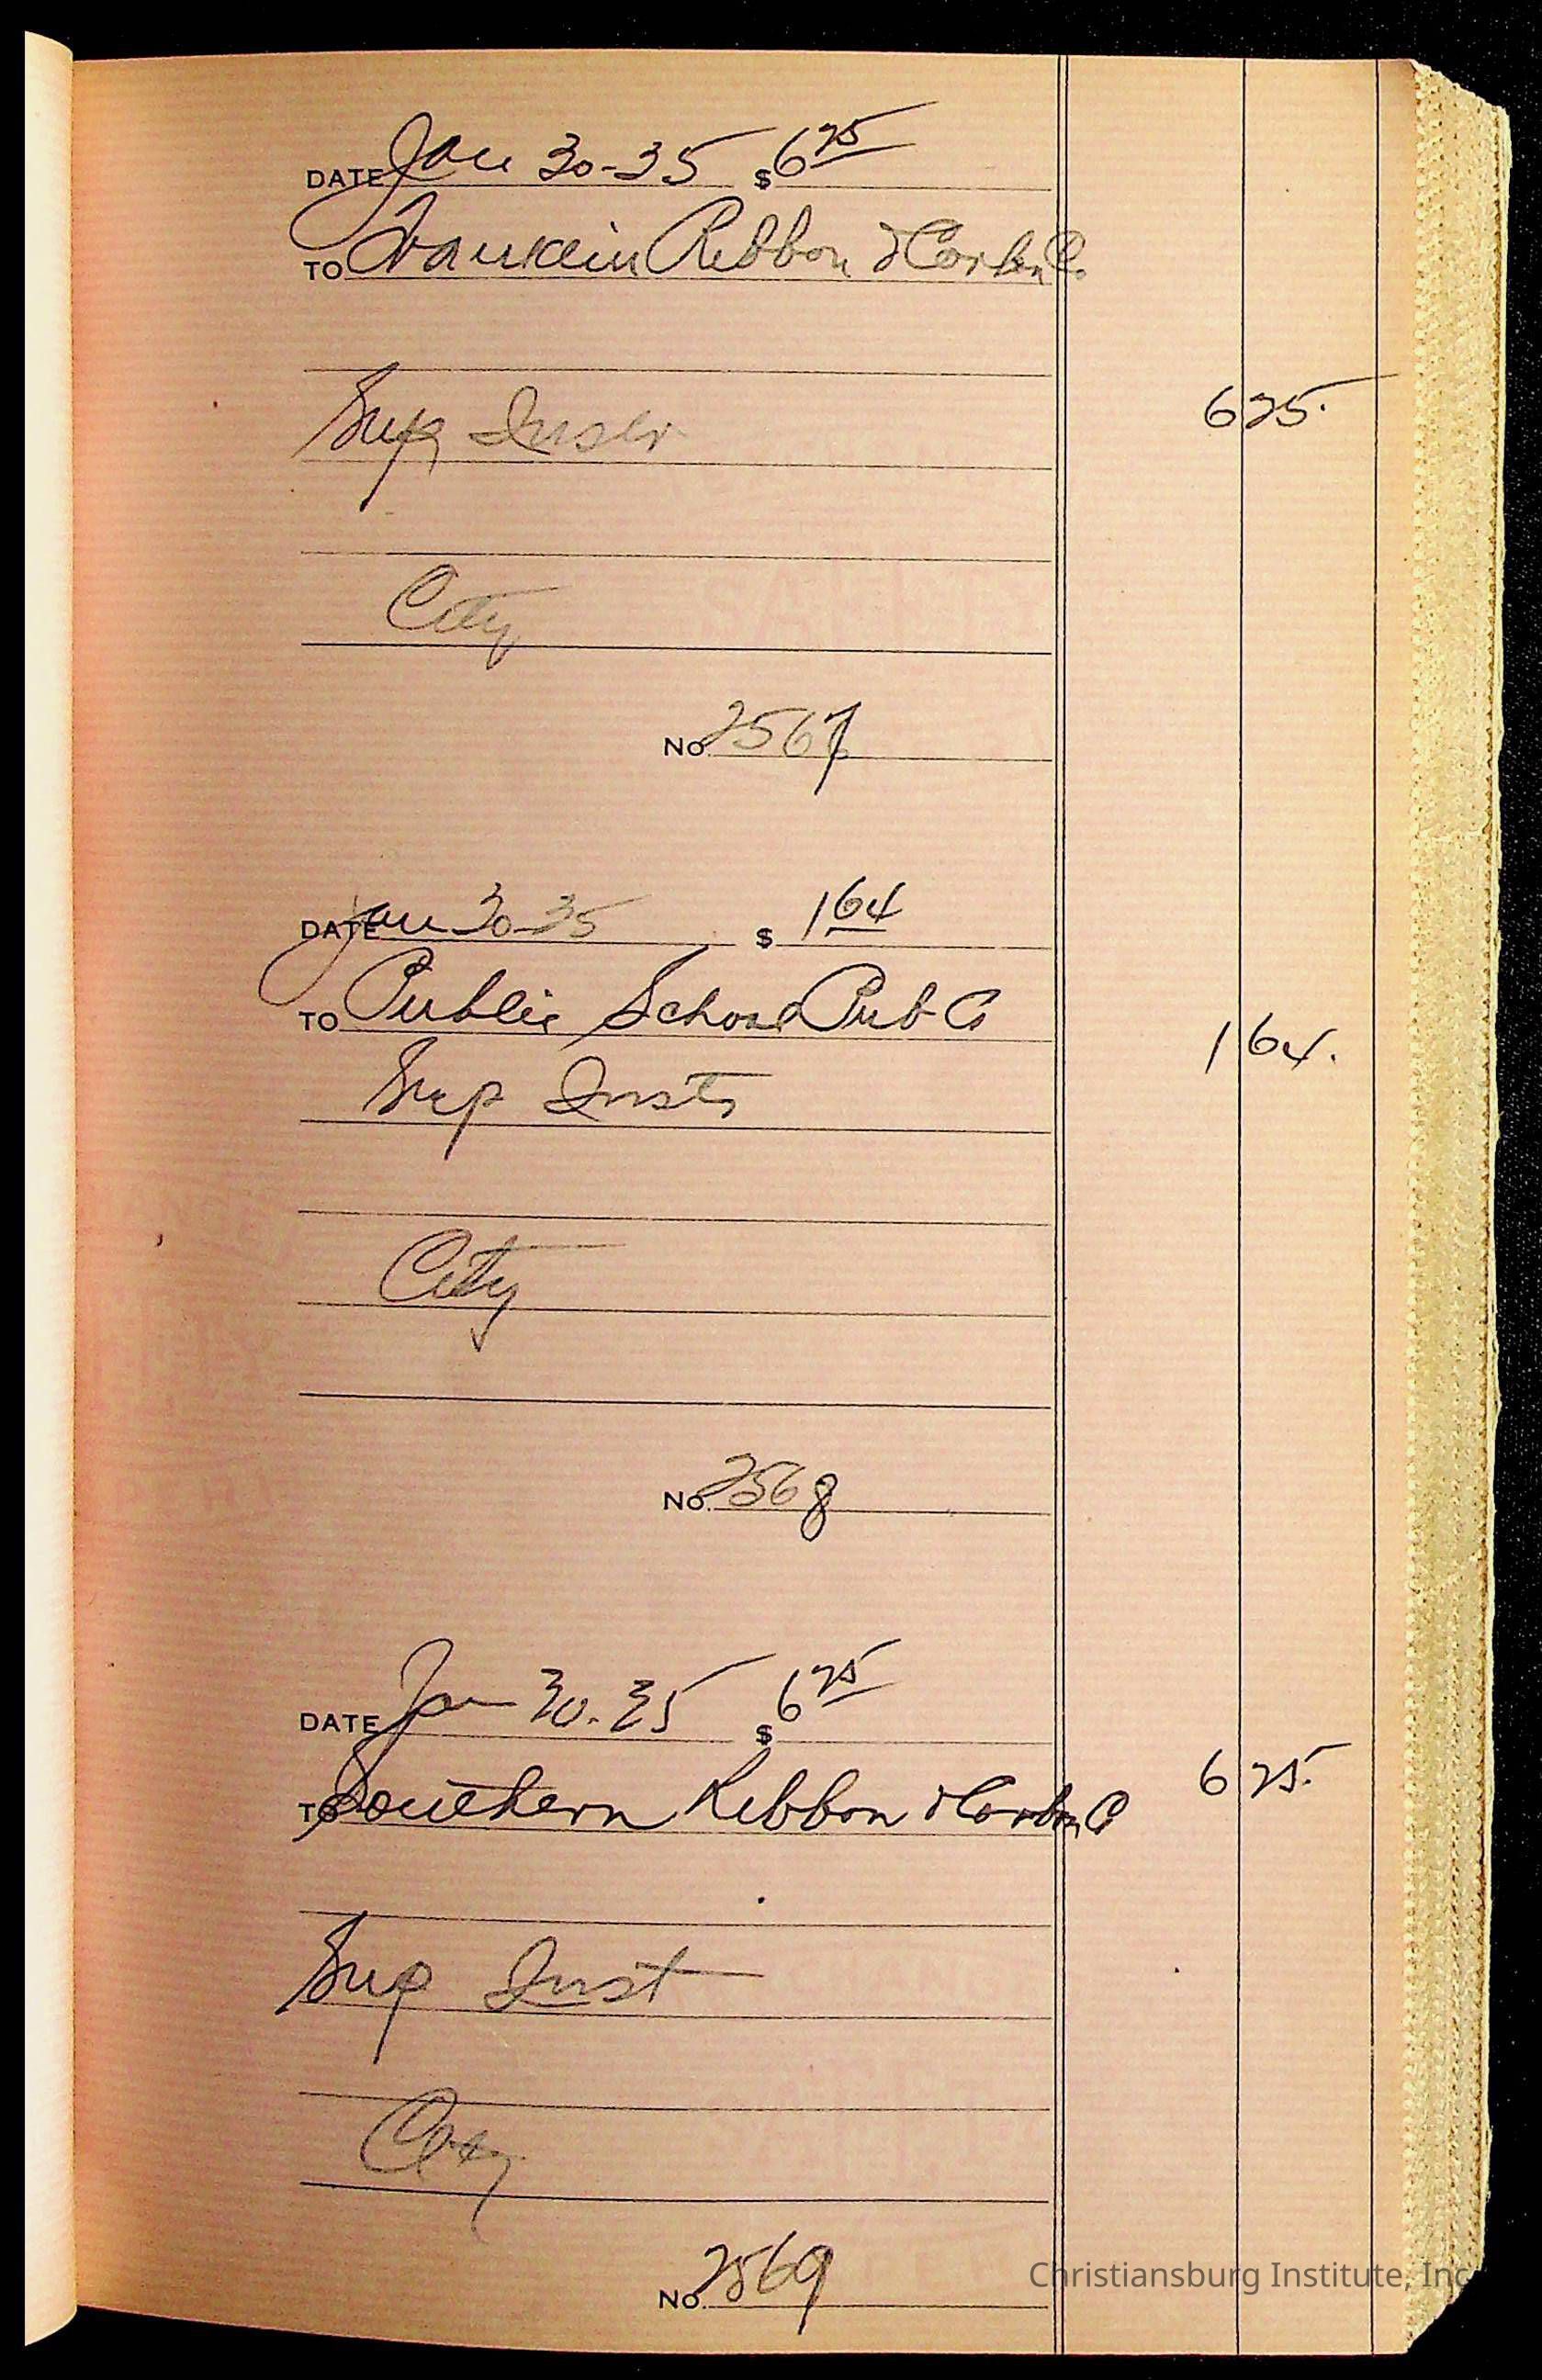 DATE Jan 30-35 $ 6 25
TO Franklin Ribbon & Carbon Co.
6 25.
Sup Instr
City
No. 2567
DATE Jan 30-35 $ 1 64
TO Public School Pub Co
1 64.
Sup Instr
City
No. 2568
DATE Jan 30-35 $ 6 25
TO Southern Ribbon & Carbon Co
6 25.
Sup Inst
City
No. 2569
Christiansburg Institute, Inc